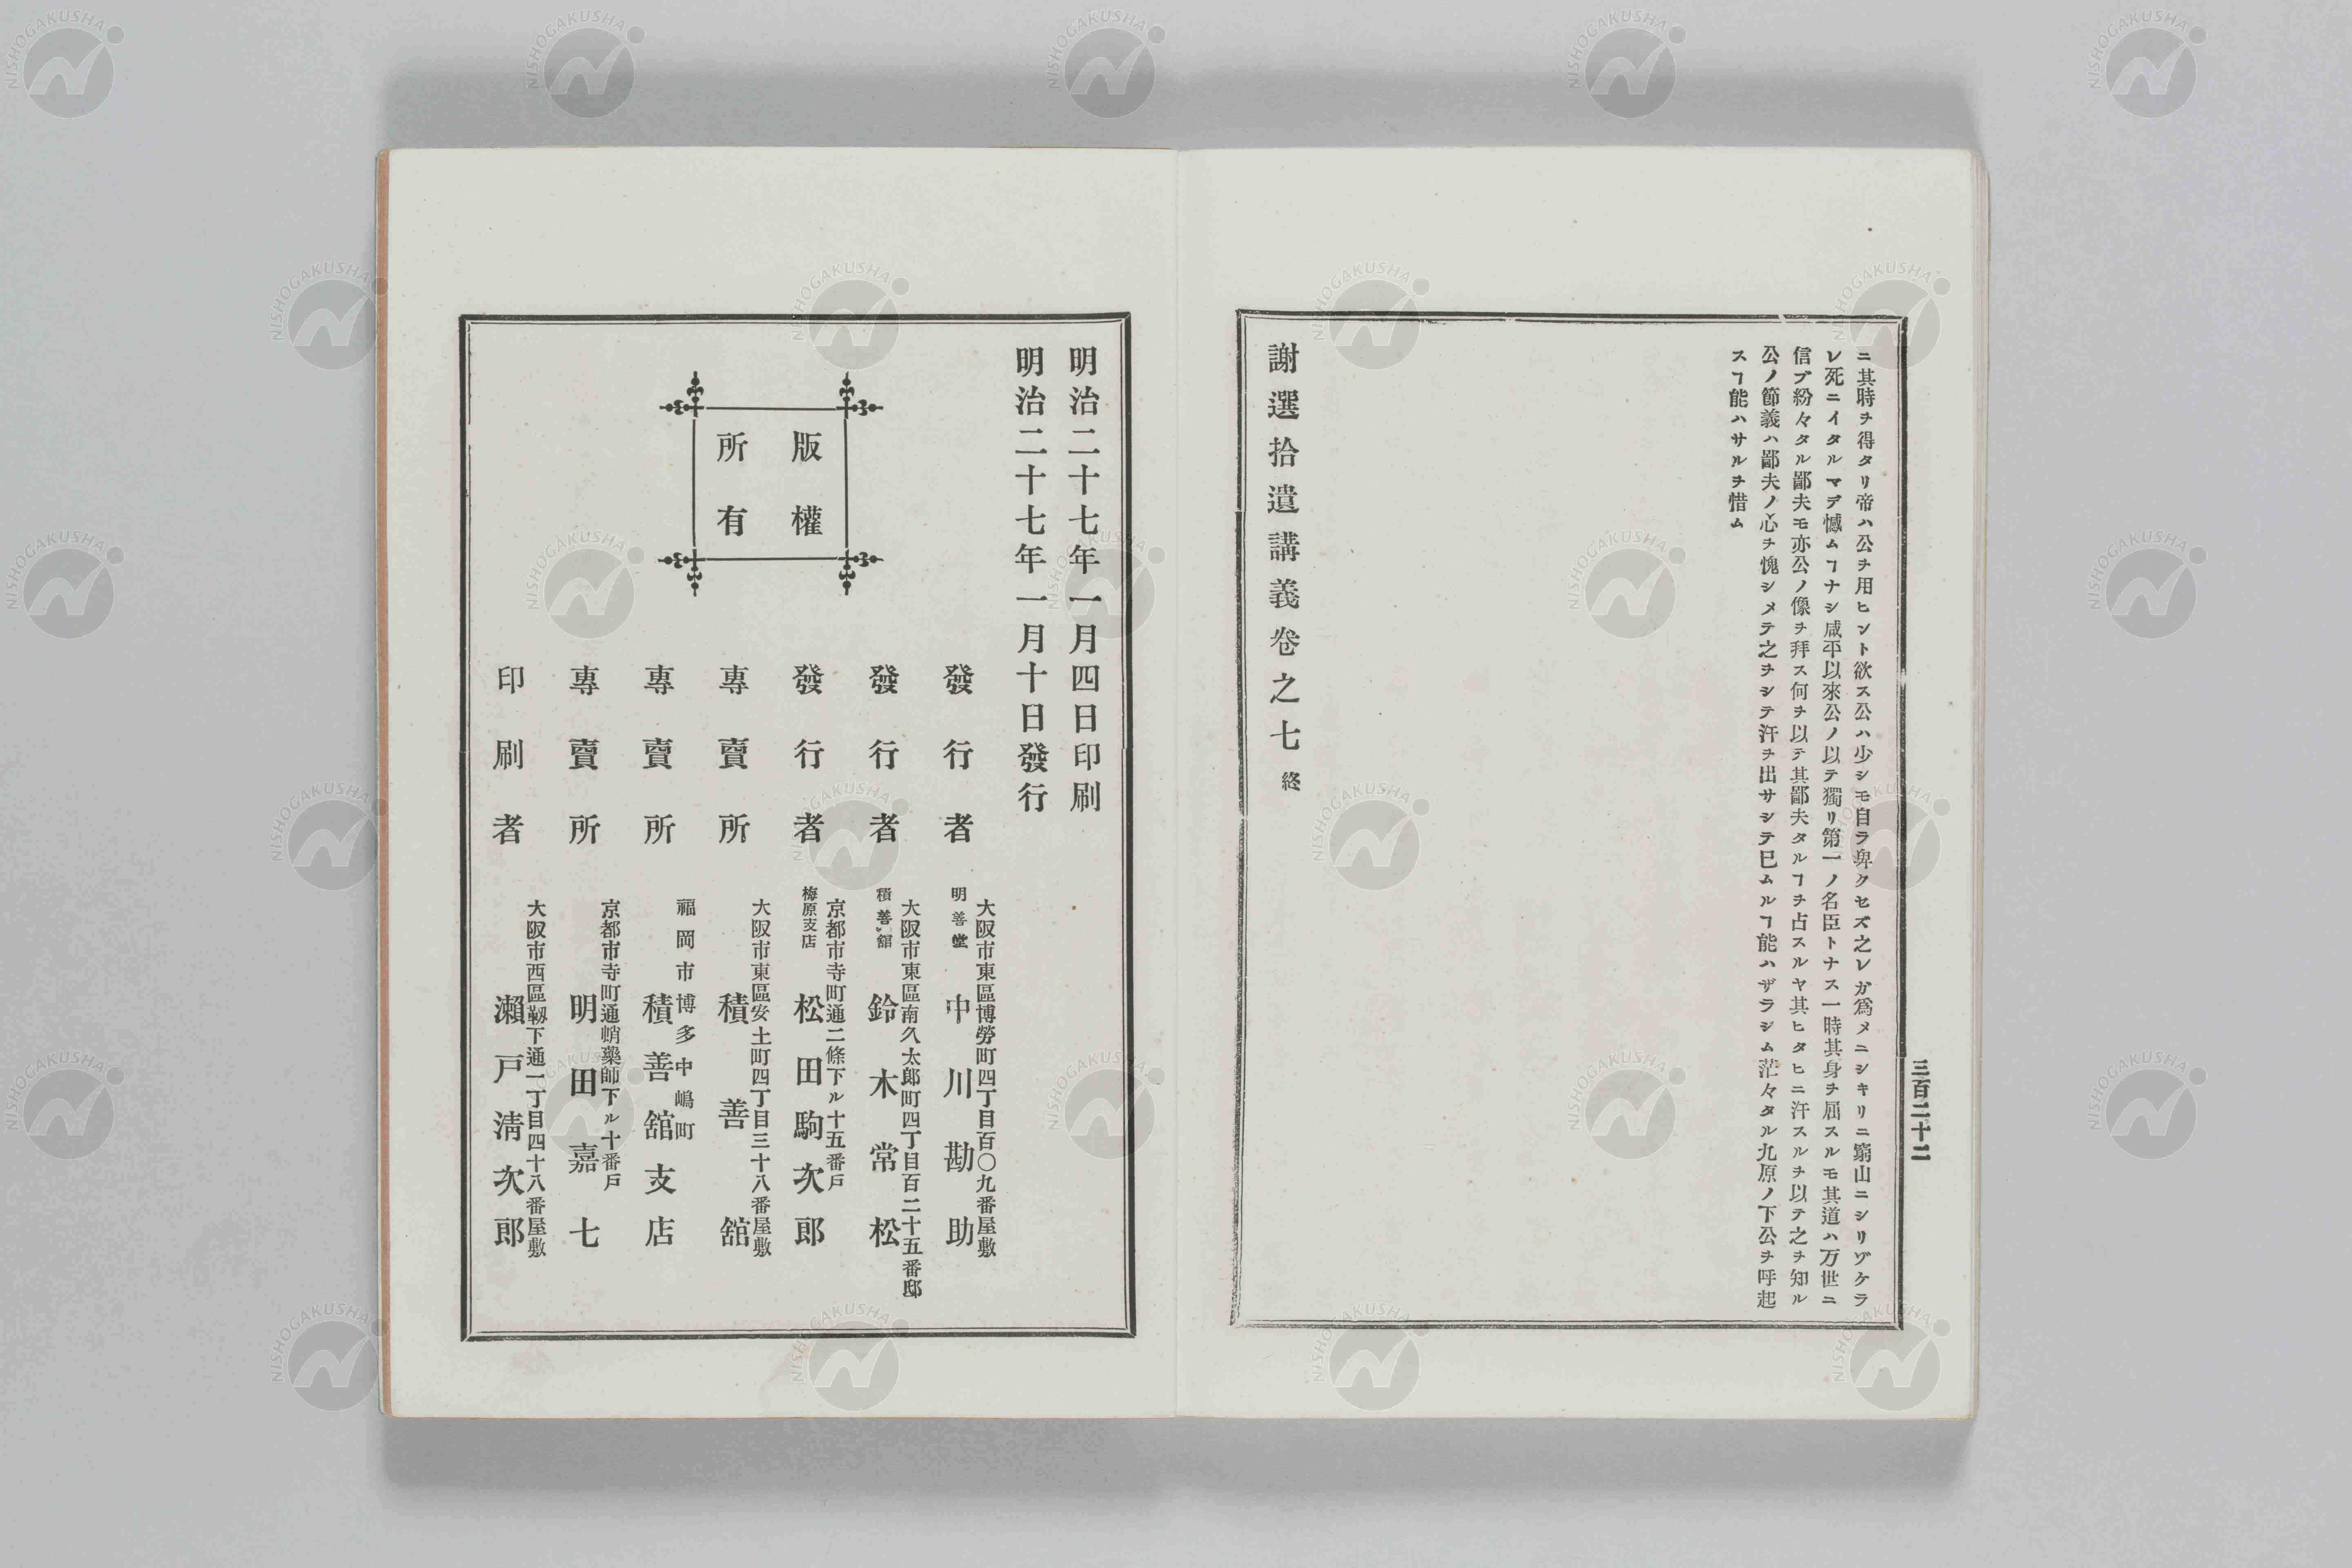 三百二十二
ニ其時ヲ得タリ帝ハ公ヲ用ヒント欲ス公ハ少シモ自ラ卑クセズ之レガ爲メニシキリニ窮山ニシリゾケラ
レ死ニイタルマデ憾ムヿナシ咸平以來公ノ以テ獨リ第一ノ名臣トナス一時其身ヲ屈スルモ其道ハ万世ニ
信ブ紛々タル鄙夫モ亦公ノ像ヲ拜ス何ヲ以テ其鄙夫タルヿヲ占スルヤ其ヒタヒニ汗スルヲ以テ之ヲ知ル
公ノ節義ハ鄙夫ノ心ヲ愧シメテ之ヲシテ汗ヲ出サシテ已ムルヿ能ハザラシム茫々タル九原ノ下公ヲ呼起
スヿ能ハサルヲ惜ム
謝選拾遺講義卷之七終
明治二十七年一月四日印刷
明治二十七年一月十日發行
版權
所有
發行者
大阪市東區博勞町四丁目百〇九番屋敷
明善堂
中川勘助
發行者
大阪市東區南久太郎町四丁目百二十五番邸
積善舘
鈴木常松
發行者
京都市寺町通二條下ル十五番戸
梅原支店
松田駒次郎
專賣所
大阪市東區安土町四丁目三十八番屋敷
積善舘
專賣所
福岡市博多中嶋町
積善舘支店
專賣所
京都市寺町通蛸藥師下ル十番戸
明田嘉七
印刷者
大阪市西區靱下通一丁目四十八番屋敷
瀨戸淸次郎
NISHOGAKUSHA